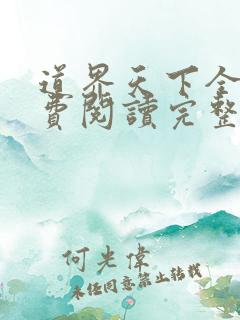 道界天下全
費閱讀完整
何光偉
未經同意禁止轉載